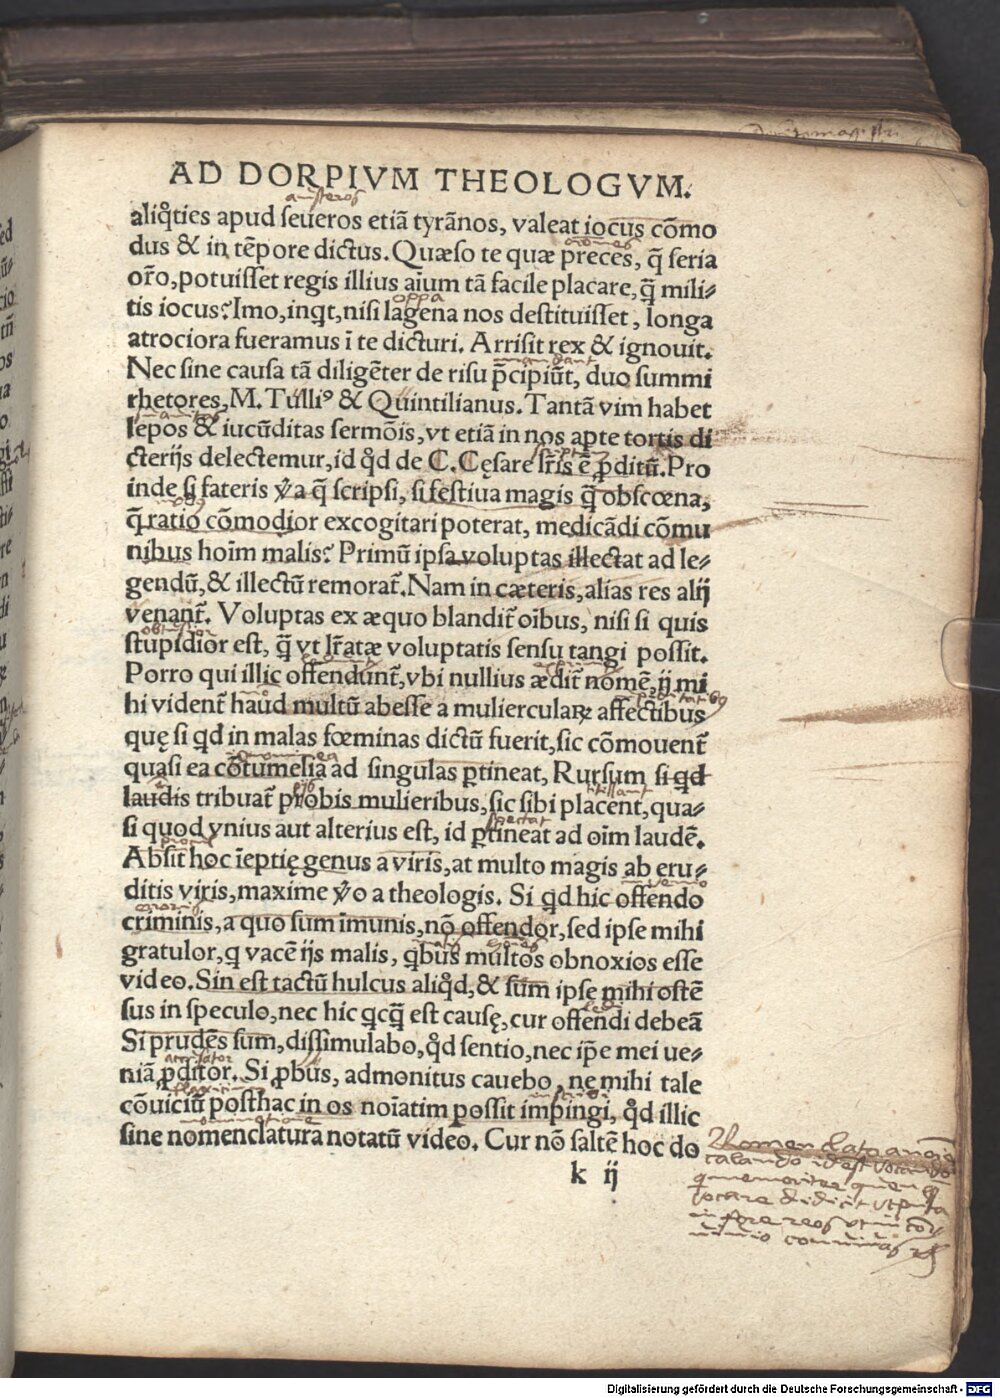 AD DORPIVM THEOLOGVM.
aliq̊ties apud seueros etiā tyrānos, valeat iocus cōmo
dus & in tēpore dictus. Quæso te quæ preces, q̄ seria
or̄o, potuisset regis illius aīum tā facile placare, q̄ mili-
tis iocus? Imo, inqt, nisi lagena nos destituisset, longa
atrociora fueramus ī te dicturi. Arrisit rex & ignouit.
Nec sine causa tā diligēter de risu p̄cipiūt, duo summi
rhetores, M. Tulliꝰ & Quintilianus. Tantā vim habet
lepos & iucūditas sermōis, vt etiā in nos apte tortis di
cterijs delectemur, id q̊d de C. Cęsare lr̄is ē ꝓditū. Pro
inde si fateris v̊a q̄ scripsi, si festiua magis q̄ obscœna,
q̄ ratio cōmodior excogitari poterat, medicādi cōmu
nibus hoīm malis? Primū ipsa voluptas illectat ad le-
gendū, & illectū remorat̄. Nam in cæteris, alias res alij
venant̄. Voluptas ex æquo blandit̄ oībus, nisi si quis
stupidior est, q̄ vt lr̄atæ voluptatis sensu tangi possit.
Porro qui illic offendunt̄, vbi nullius ædit̄ nomē, ij mi
hi vident̄ haud multū abesse a mulierculaꝝ affectibus
quę si qd in malas fœminas dictū fuerit, sic cōmouent̄
quasi ea cōtumelia ad singulas ꝑtineat, Rursum si qd
laudis tribuat̄ probis mulieribus, sic sibi placent, qua-
si quod vnius aut alterius est, id ꝑtineat ad oīm laudē.
Absit hoc īeptię genus a viris, at multo magis ab eru-
ditis viris, maxime v̊o a theologis. Si qd hic offendo
criminis, a quo sum īmunis, nō offendor, sed ipse mihi
gratulor, q vacē ijs malis, qbus multos obnoxios esse
video. Sin est tactū hulcus aliq̊d, & sum ipse mihi ostē
sus in speculo, nec hic qcq̄ est causę, cur offendi debeā
Si prudēs sum, dissimulabo, q̊d sentio, nec ip̄e mei ue-
niā ꝓditor. Si ꝓbus, admonitus cauebo, ne mihi tale
cōuiciū posthac in os noīatim possit impingi, q̊d illic
sine nomenclatura notatū video. Cur nō saltē hoc do
k ij
Digitalisierung gefördert durch die Deutsche Forschungsgemeinschaft - DFG